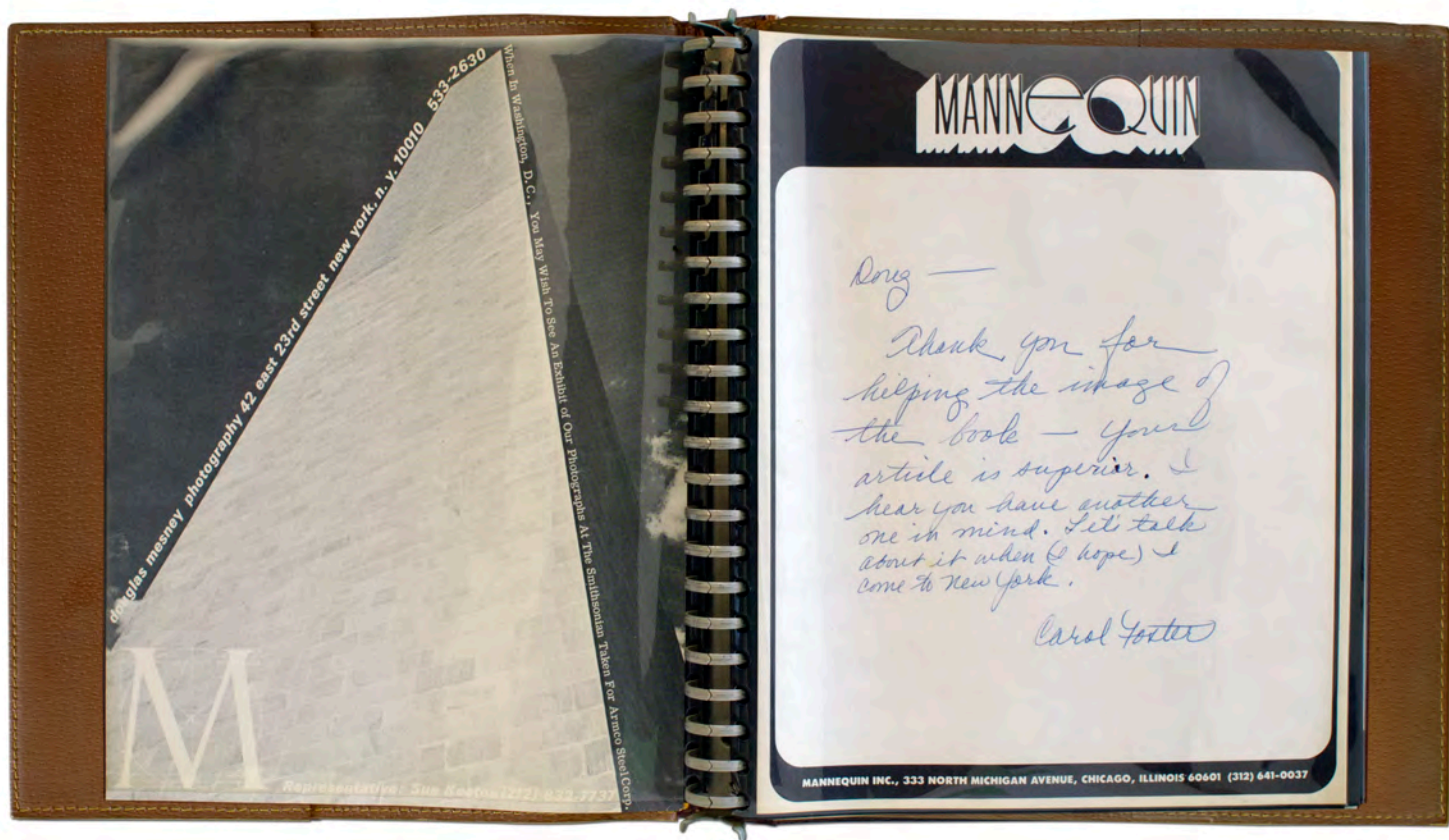 douglas mesney photography 42 east 23rd street new york, n. y. 10010 533-2630
When In Washington, D.C., You May Wish To See An Exhibit of Our Photographs At The Smithsonian Taken For Armco Steel Corp.
M
Representative: Sue (212) 832-7737
MANNeQUIN
Doug —
Thank you for
helping the image of
the book — your
article is superior. I
hear you have another
one in mind. Let's talk
about it when (I hope) I
come to New York.
Carol Foster
MANNEQUIN INC., 333 NORTH MICHIGAN AVENUE, CHICAGO, ILLINOIS 60601 (312) 641-0037